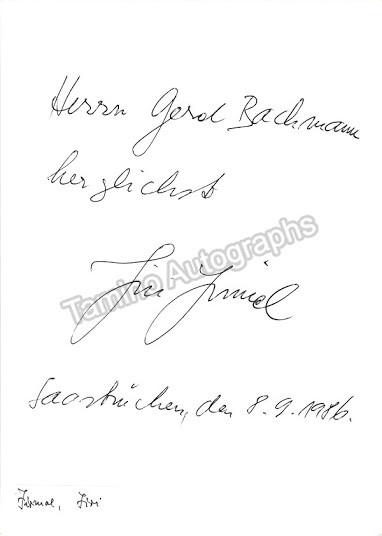 Herrn Gerd Bachmann
herzlichst
Jiri
Tamino Autographs
Saarbrücken, den 8. 9. 1986.
Jiri